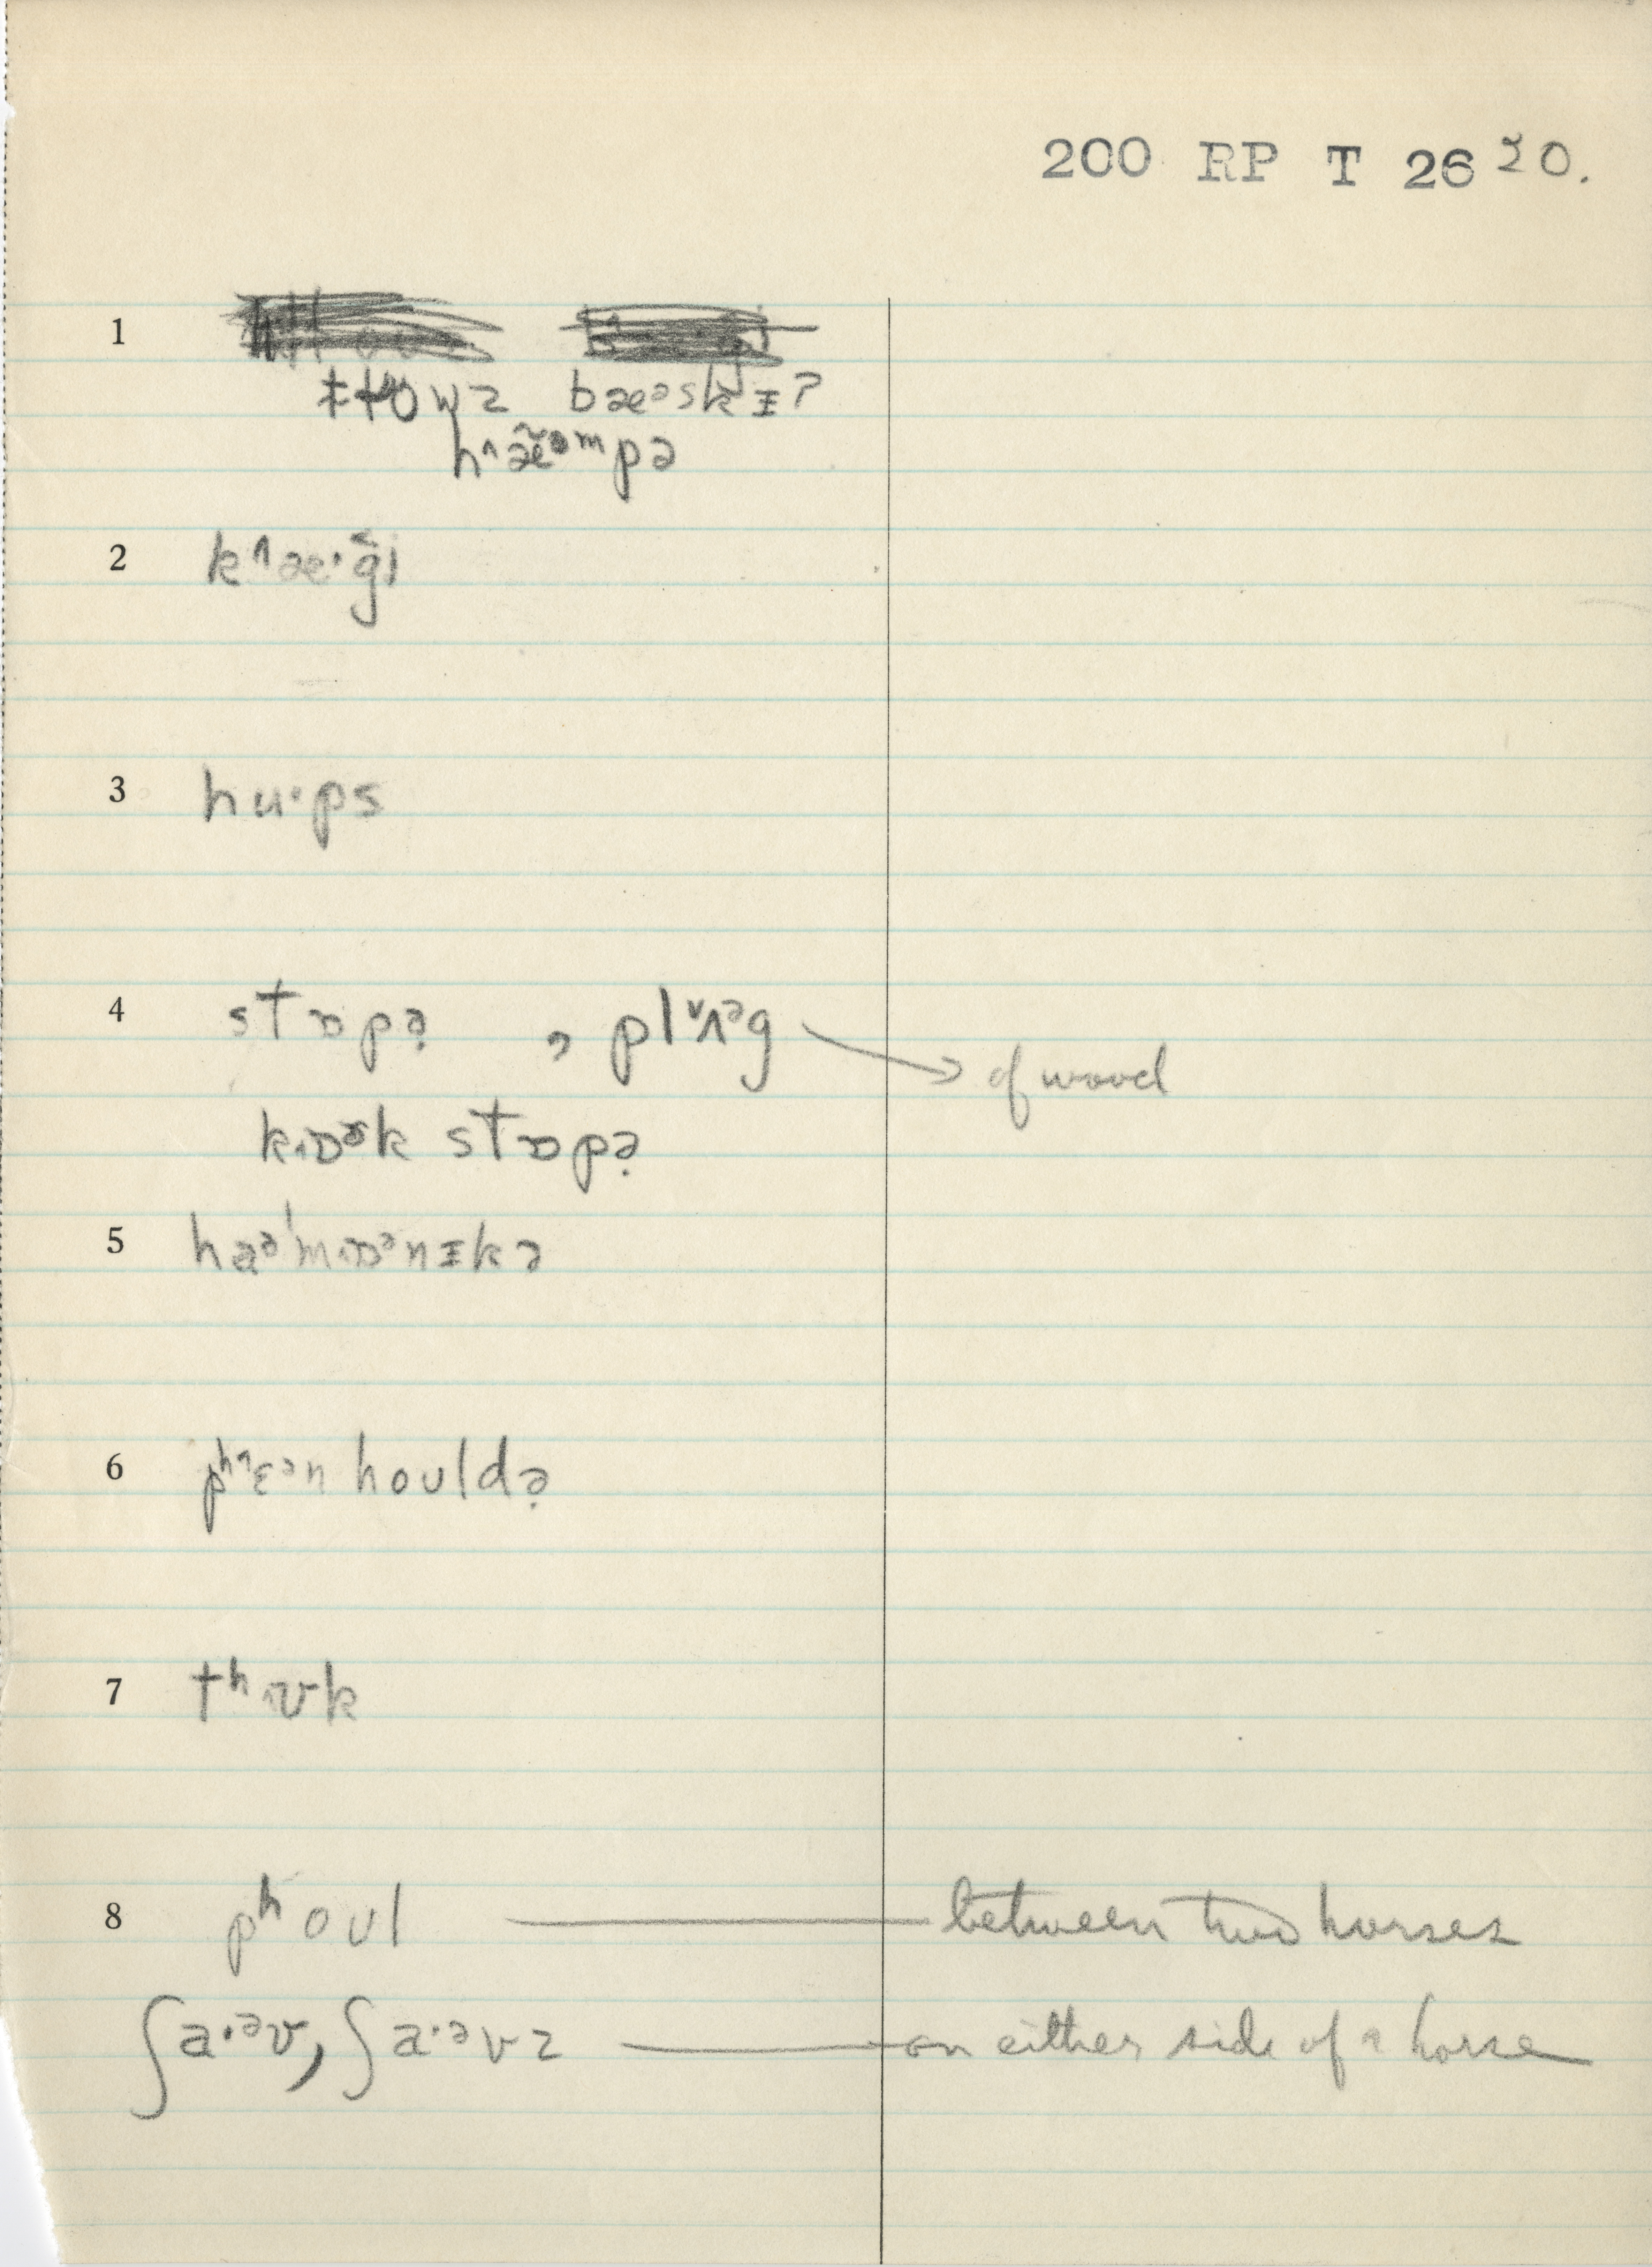 200 RP T 26 20.
1
bæᵊskɪ?
h˄æ̃ᵊᵐpə
2 k˄æ·ǧi
3 hu·ps
4 stɒpə̣ , pl˅ʌᵊg → of wood
kɒᵊk stɒpə̣
5 haᵊ'mɒᵊnɪkə
6 pʰ˄ɛᵊn houldə̣
7 tʰʊk
8 pʰoʊl — between two horses
ʃa·ᵊv, ʃa·ᵊvz — on either side of a horse